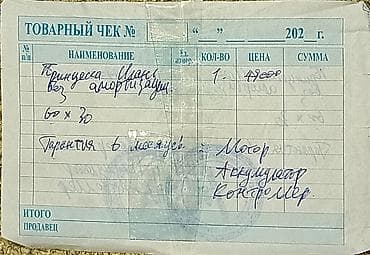 ТОВАРНЫЙ ЧЕК № " " 202 г.
№ п/п НАИМЕНОВАНИЕ Ед. измер. КОЛ-ВО ЦЕНА СУММА
Принцесса 1
без амортизации.
60 x 30
Гарантия 6 месяцев = Мотор
Аккумулятор
Контроллер.
ИТОГО
ПРОДАВЕЦ